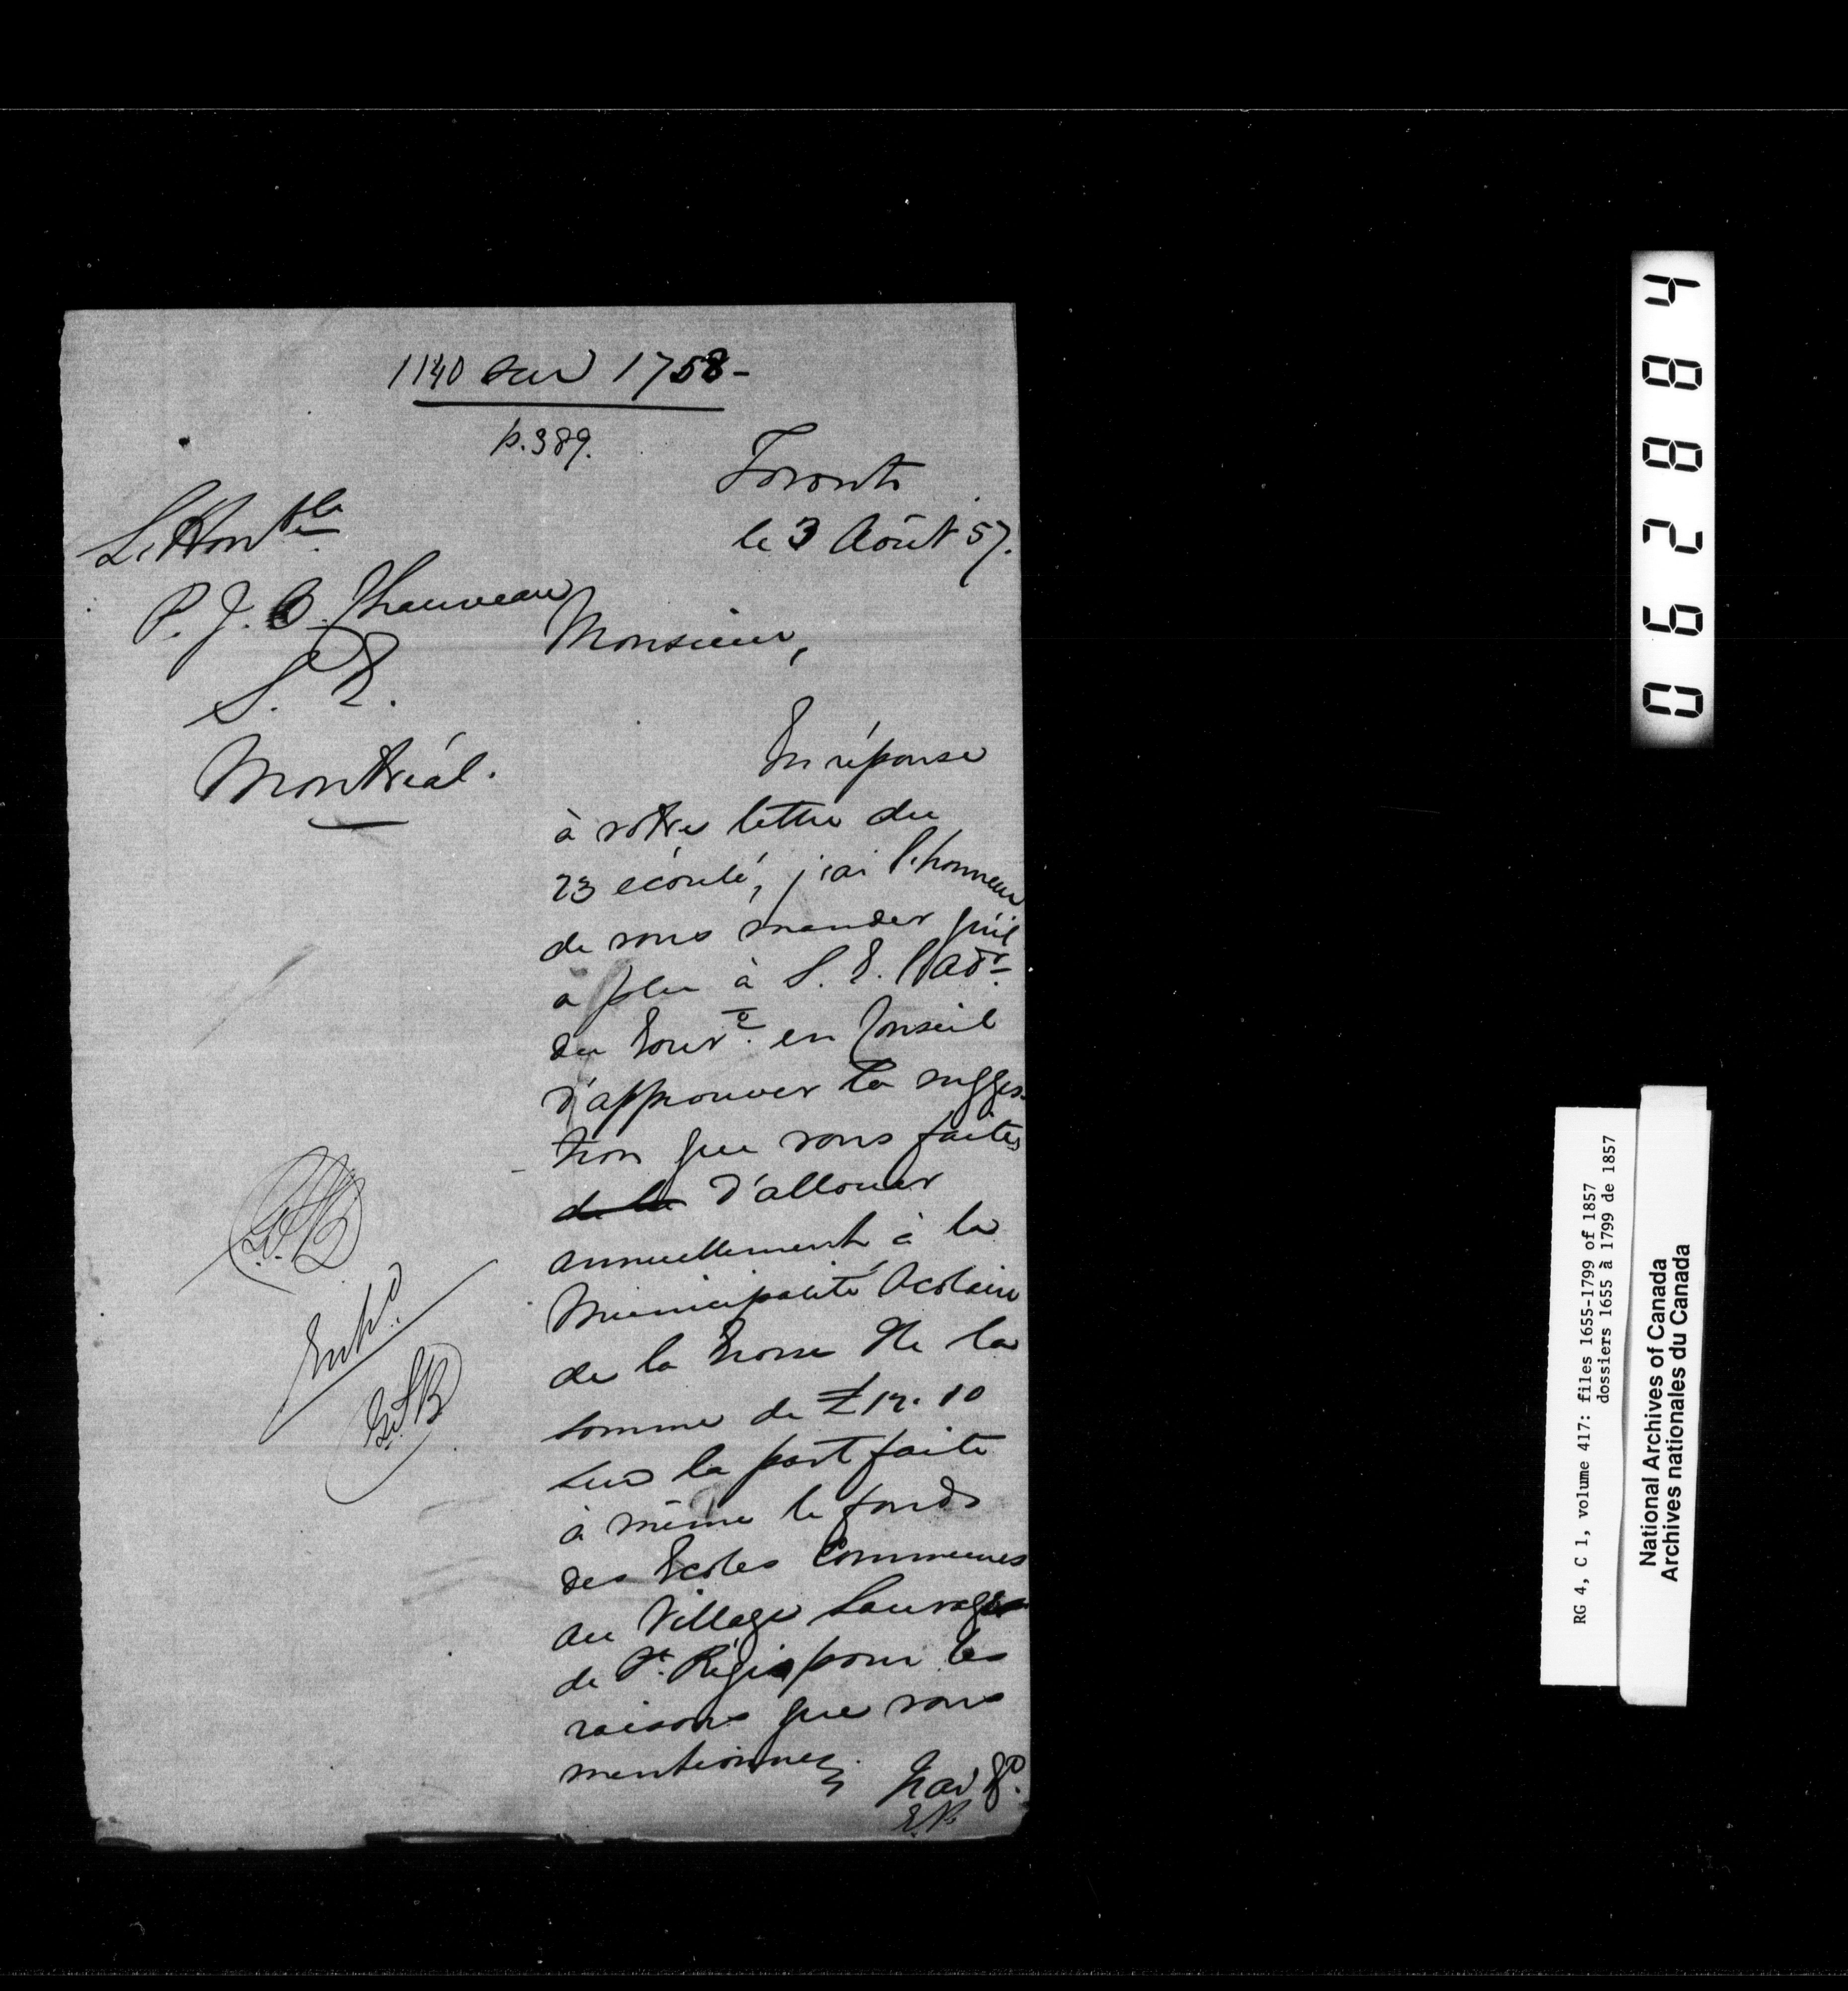 1140 sur 1758-
p. 389.
Toronto
le 3 Août 57.
L'Honble
P. J. O. Chauveau
S. E.
Montréal.
Monsieur,
En réponse
à votre lettre du
23 écoulé, j'ai l'honneur
de vous mander qu'il
a plu à S. E. l'Adr
du Gouvt. en Conseil
d'approuver la sugges-
tion que vous faites
de la d'allouer
annuellement à la
Municipalité Scolaire
de la Grosse Ile la
somme de £12.10
sur la part faite
à même le fonds
des Ecoles Communes
au Village Sauvage
de St. Régis pour les
raisons que vous
mentionnez.
Entd.
062884
RG 4, C 1, volume 417: files 1655-1799 of 1857
dossiers 1655 à 1799 de 1857
National Archives of Canada
Archives nationales du Canada